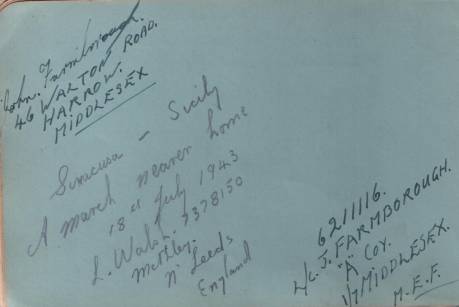 John. Farmborough.
46 WALTON ROAD.
HARROW.
MIDDLESEX
Siracusa - Sicily
A march nearer home
18th July 1943
L. Walsh 7378150
Methley.
Nr Leeds
England
6211116.
L/C. J. FARMBOROUGH.
"A" COY.
1/7 MIDDLESEX.
M.E.F.